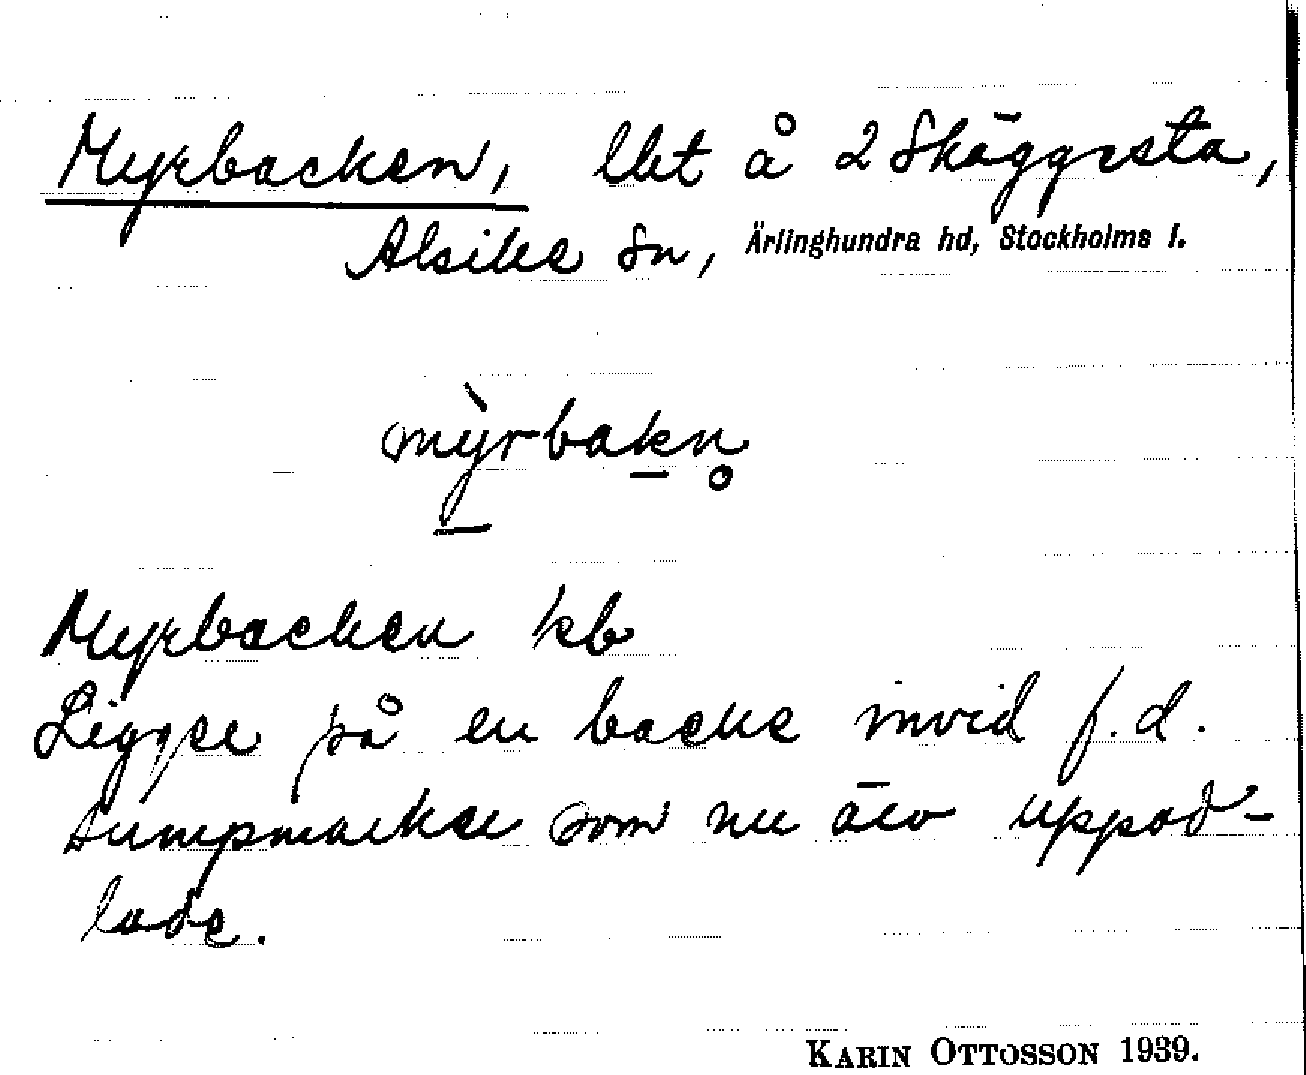 Myrbacken, lht å 2 Skäggesta,
Alsike sn, Ärlinghundra hd, Stockholms l.
mỳrbakn̥
Myrbacken kb
Ligger på en backe invid f.d.
sumpmarker som nu äro uppod-
lade.
KARIN OTTOSSON 1939.